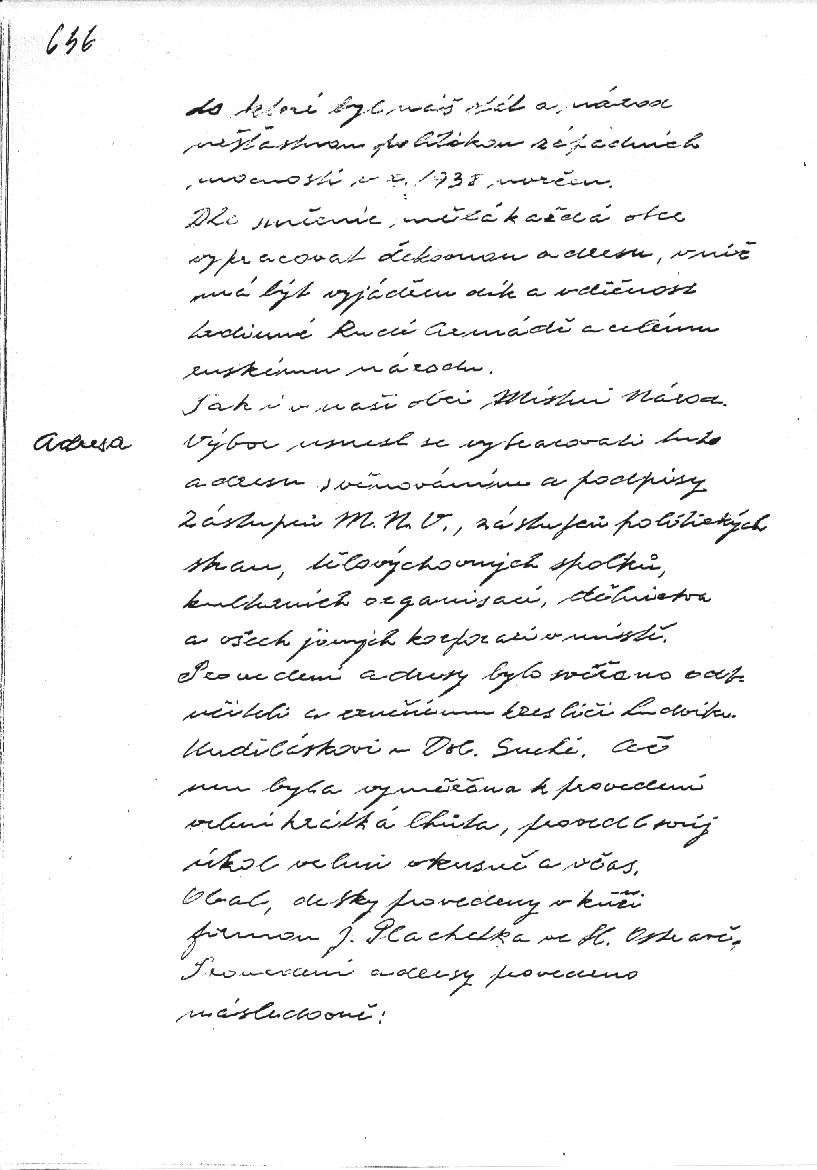 636
do které byl náš stát a národ
nešťastnou politikou západních
mocností v r. 1938 uvržen.
Dle směrnic, měla každá obec
vypracovat děkovnou adresu, v níž
má být vyjádřen dík a vděčnost
hrdinné Rudé Armádě a celému
ruskému národu.
Tak i v naší obci Místní Národ.
Adresa
Výbor usnesl se vypracovati tuto
adresu s věnováním a podpisy
Zástupců M. N. V., zástupců politických
stran, tělovýchovných spolků,
kulturních organisací, dělnictva
a všech jiných korporací v místě.
Provedení adresy bylo svěřeno odb.
učiteli a kresliči Ludvíku
Kudiláskovi v Dol. Suché. Ač
mu byla vyměřena k provedení
velmi krátká lhůta, provedl svůj
úkol velmi vkusně a včas.
Obal, desky provedeny v kůži
firmou J. Plachetka ve Sl. Ostravě.
Provedení adresy provedeno
následovně: